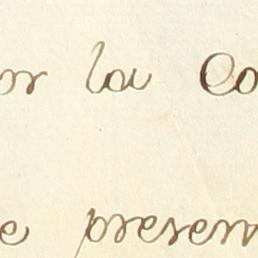 or la Co
e presen